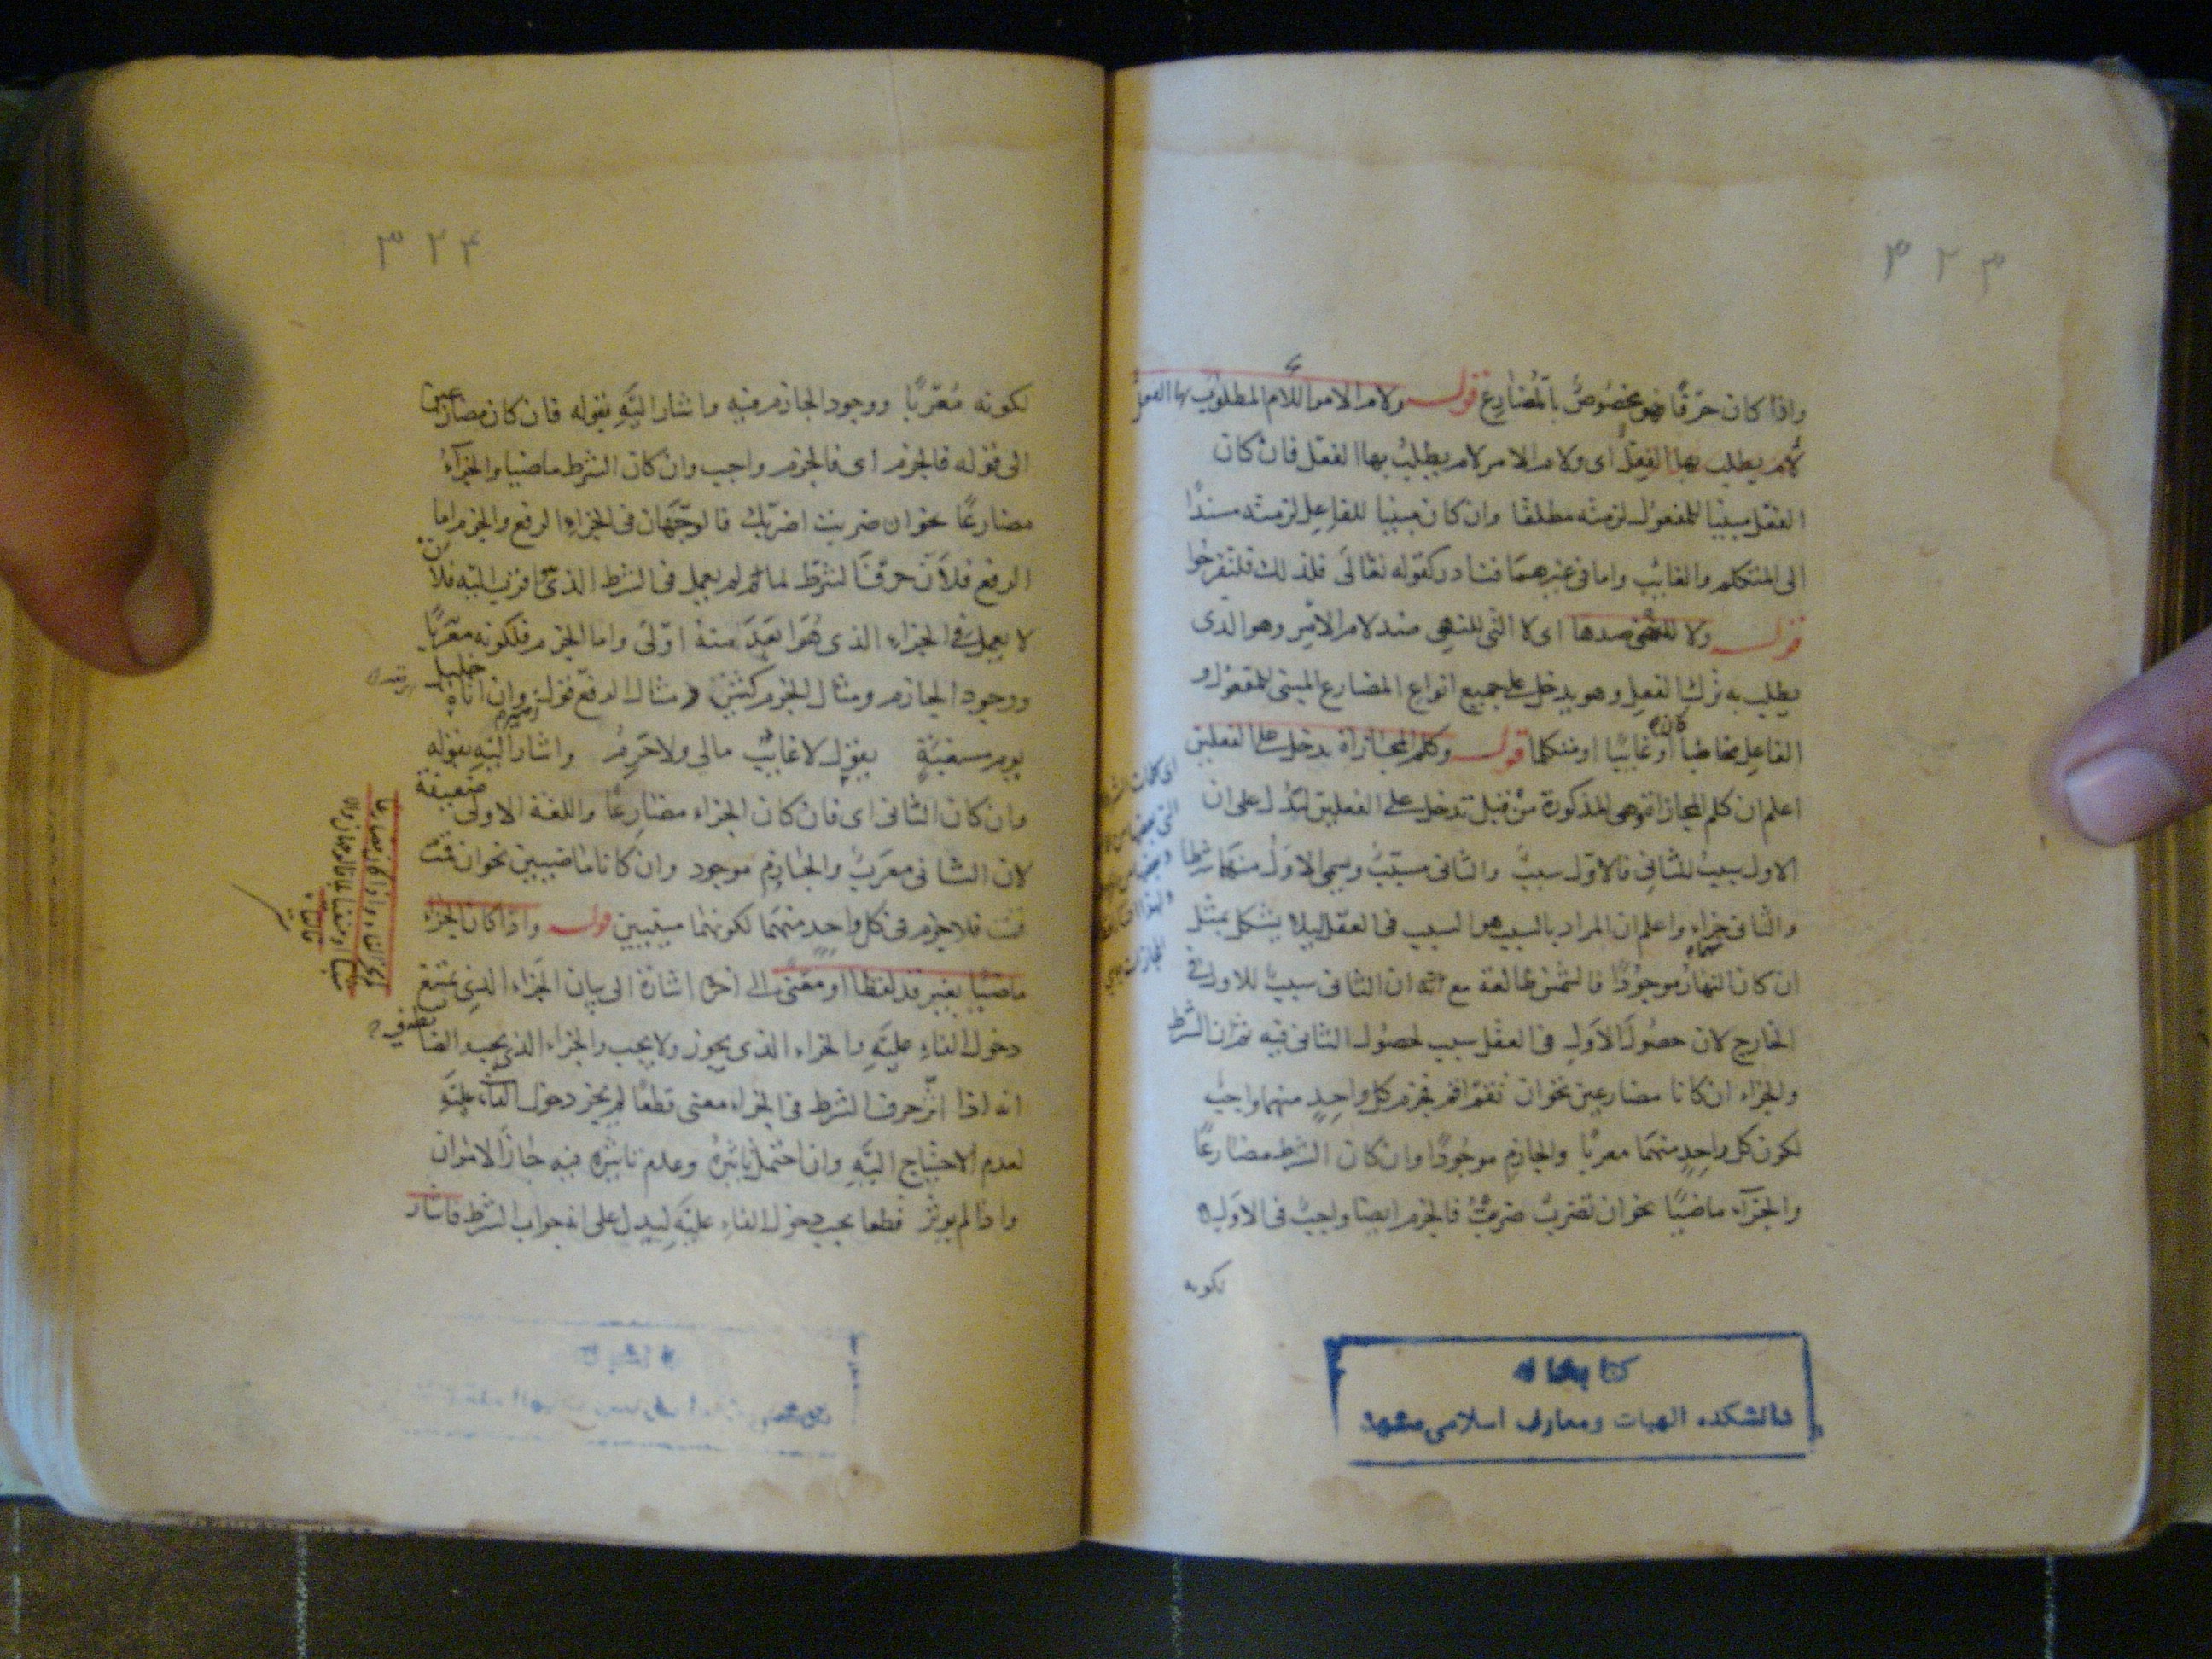 ۳۲۳
واذا كان حرفًا فهو مخصوصٌ بالمضارع قوله ولام الامر اللام المطلوب بها الفعل
لام يطلب بها الفعل اى ولام الامر لام يطلب بها الفعل فان كان
الفعل مبنيا للمفعول لزمته مطلقا وان كان مبنيا للفاعل لزمته مسندًا
الى المتكلم والغائب واما فى غيرهما فشاذ كقوله تعالى فبذلك فلتفرحوا
قوله ولا للنهى ضدها اى لا التى للنهى ضد لام الامر وهو الذى
يطلب به ترك الفعل وهو يدخل على جميع انواع المضارع المبنى للمفعول و
الفاعل مخاطبا كان او غائبًا او متكلما قوله وكلم المجازاة يدخل على الفعلين
اعلم ان كلم المجازاة وهى المذكورة من قبل تدخل على الفعلين لتدل على ان
الاول سبب للثانى فالاول سببٌ والثانى مسبَّبٌ ويسمى الاول منهما شرطا
والثانى جزاء واعلم ان المراد بالسبب هو السبب فى العقل ليلا يشكل بمثل
ان كان النهار موجودًا فالشمس طالعة مع انه ان الثانى سببٌ للاول فى
الخارج لان حصول الاول فى العقل سبب لحصول الثانى فيه ثم ان الشرط
والجزاء ان كانا مضارعين نحو ان تقم اقم فجزم كل واحدٍ منهما واجبٌ
لكون كل واحدٍ منهما معربًا والجازم موجودًا وان كان الشرط مضارعًا
والجزآء ماضيًا نحو ان تضرب ضربتُ فالجزم ايضا واجبٌ فى الاول
لكونه
كتابخانه
دانشكده الهيات ومعارف اسلامى مشهد
۳۲۴
لكونه مُعْربًا ووجود الجازم فيه واشار اليه بقوله فان كان مضارعين
الى قوله فالجزم اى فالجزم واجب وان كان الشرط ماضيا والجزآء
مضارعًا نحو ان ضربت اضربك فالوجهان فى الجزاء الرفع والجزم اما
الرفع فلأن حرف الشرط لما لم يعمل فى الشرط الذى اقرب اليه فلان
لا يعمل فى الجزاء الذى هو ابعد منه اولى واما الجزم فلكونه معربًا
ووجود الجازم ومثال الجزم كثير ومثال الرفع قوله وان اتاه خليل
يوم مسغبةٍ يقول لا غائبٌ مالى ولا حرمُ واشار اليه بقوله
وان كان الثانى اى فان كان الجزاء مضارعًا واللغة الاولى ضعيفة
لان الثانى معربٌ والجازم موجود وان كانا ماضيين نحو ان قمتَ
قمت فلا جزم فى كل واحدٍ منهما لكونهما مبنيين قوله واذا كان الجزاء
ماضيًا بغير قد لفظا او معنى الى اخره اشارة الى بيان الجزاء الذى يمتنع
دخول الفاء عليه والجزاء الذى يجوز ولا يجب والجزاء الذى يجب الضابطة فى
انه اذا اثّر حرف الشرط فى الجزاء معنى قطعًا لم يجز دخول الفاء عليه
لعدم الاحتياج اليه وان احتمل تاثيره وعدم تاثيره فيه جاز الامران
واذا لم يوثر قطعا يجب دخول الفاء عليه ليدل على انه جواب الشرط فاشار